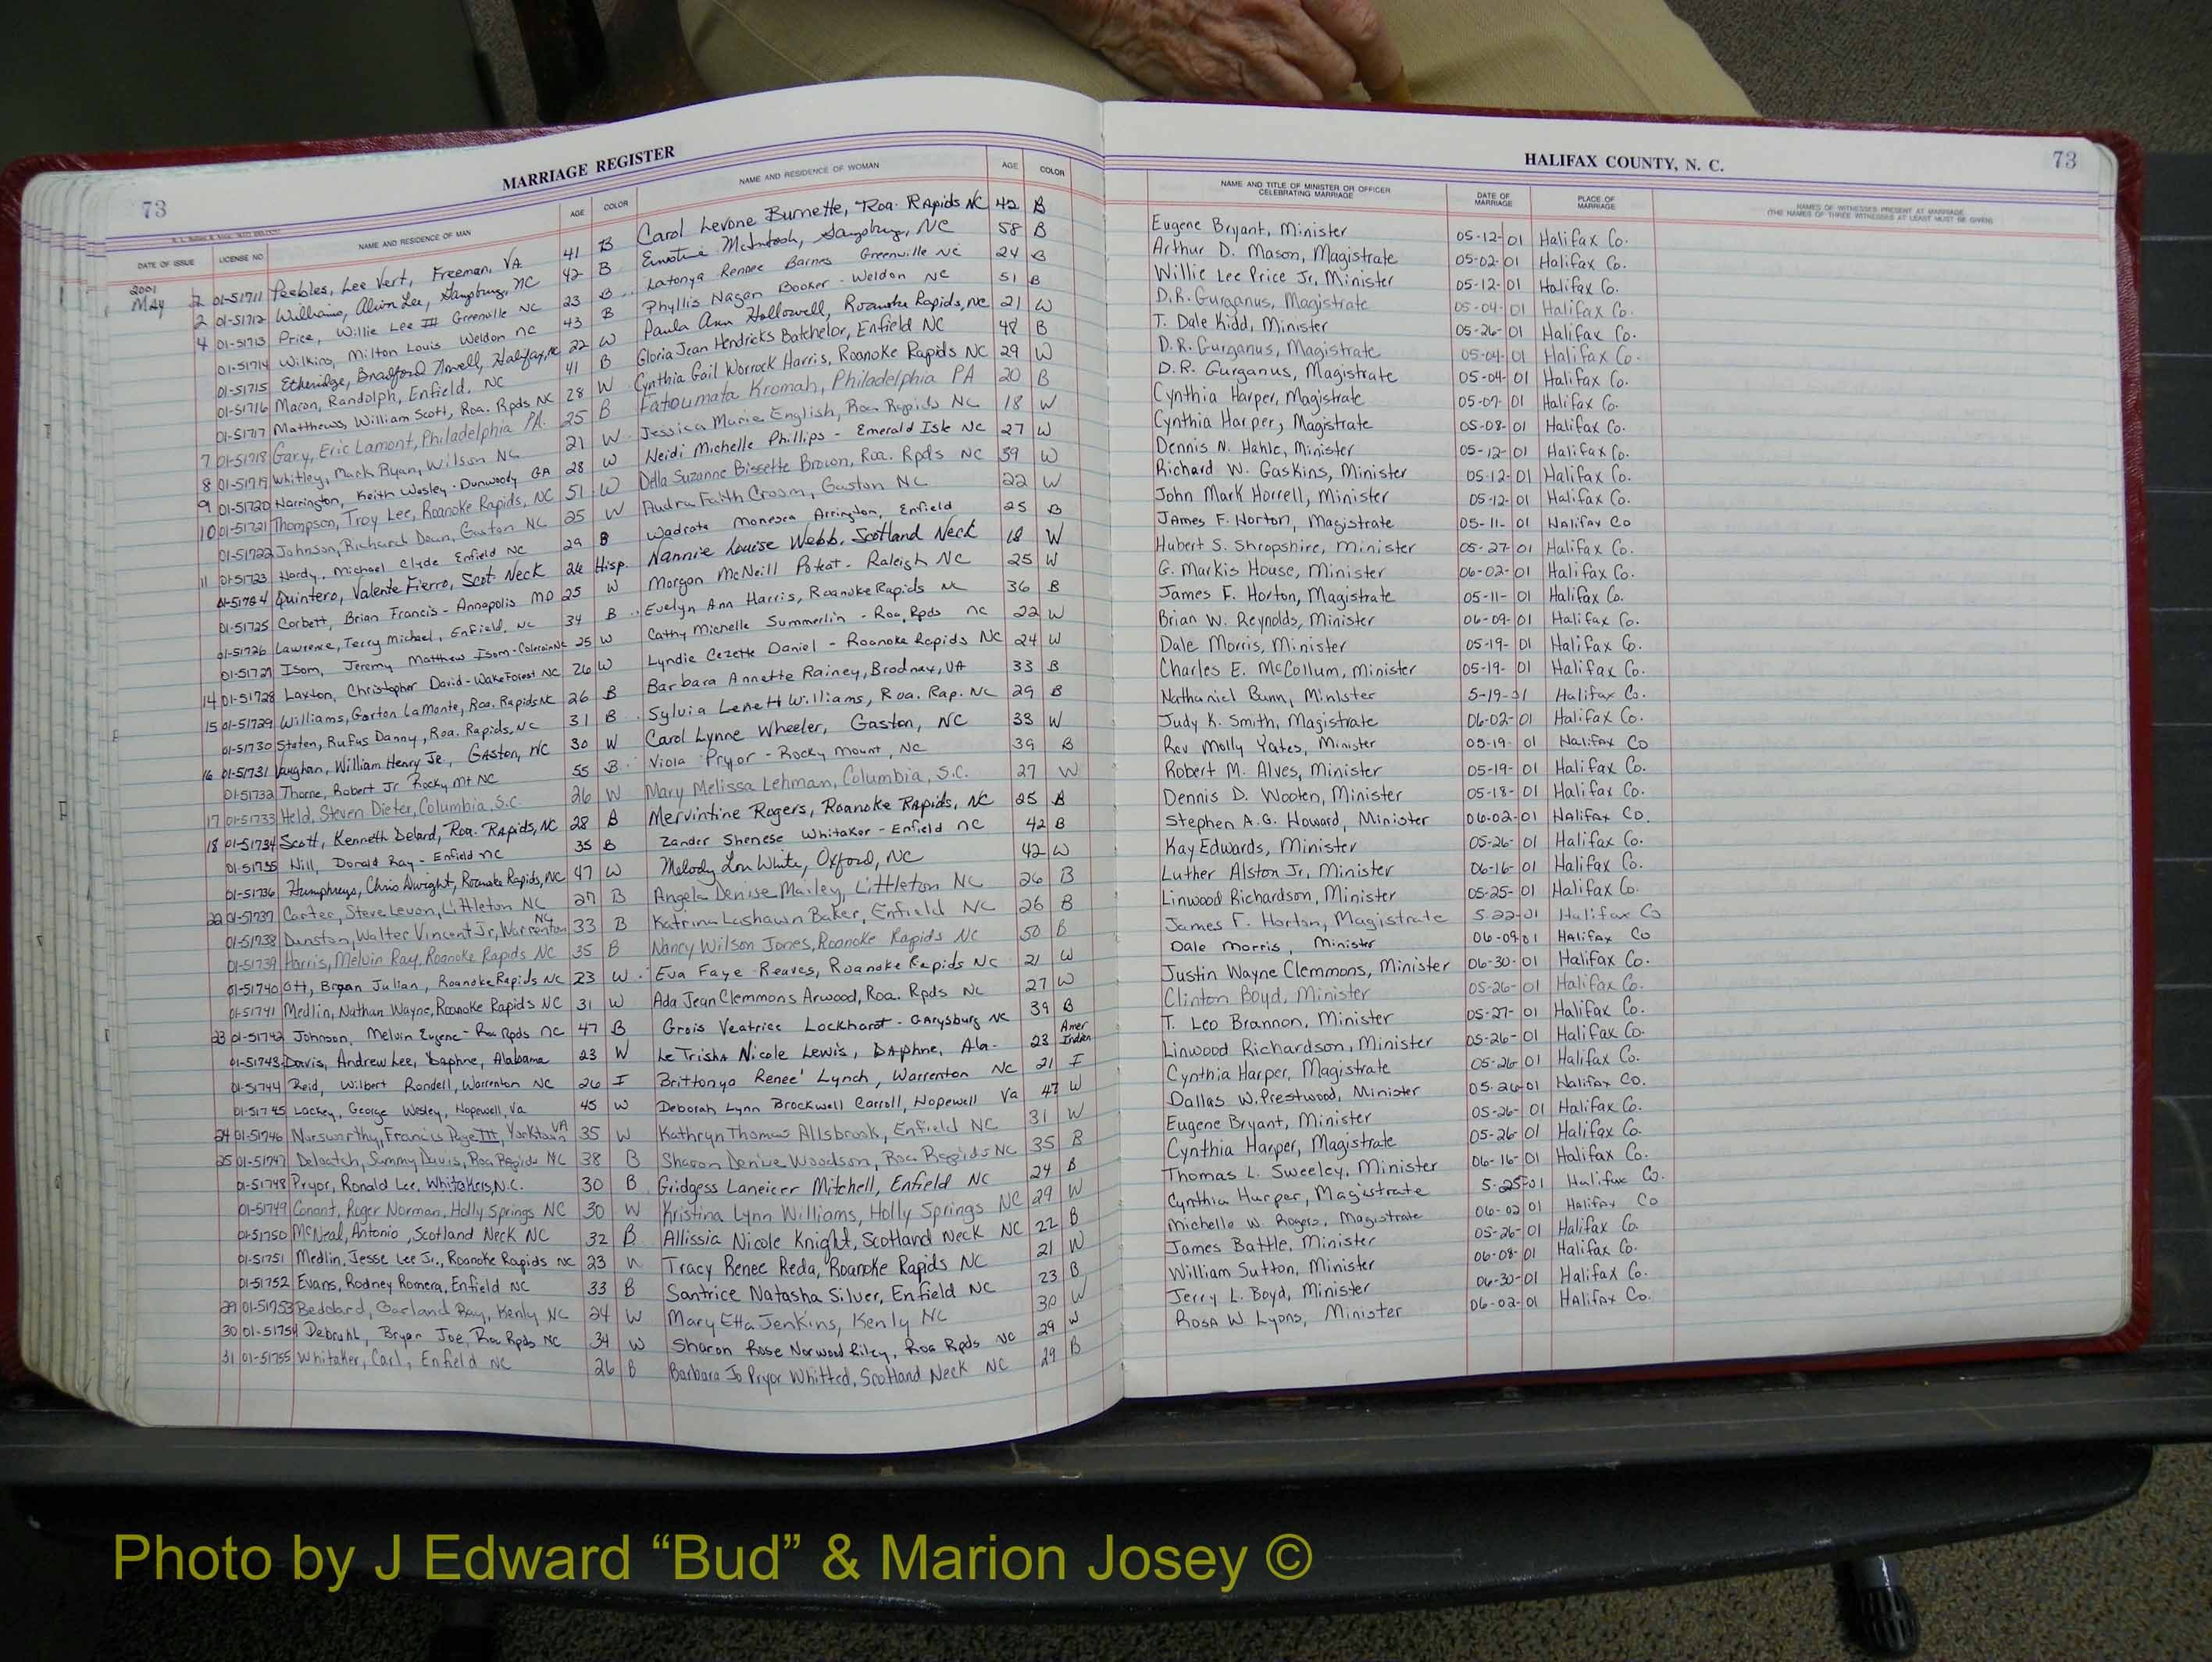 73 MARRIAGE REGISTER
DATE OF ISSUE LICENSE NO. NAME AND RESIDENCE OF MAN AGE COLOR NAME AND RESIDENCE OF WOMAN AGE COLOR
2001
May 2 01-51711 Peebles, Lee Vert, Freeman, VA 41 B Carol Levone Burnette, Roa. Rapids NC 42 B
2 01-51712 Williams, Alvin Lee, Garysburg, NC 42 B Ernestine McIntosh, Garysburg, NC 58 B
4 01-51713 Price, Willie Lee III Greenville NC 23 B Latonya Rennee Barnes Greenville NC 24 B
01-51714 Wilkins, Milton Louis Weldon NC 43 B Phyllis Nagan Booker - Weldon NC 51 B
01-51715 Etheridge, Bradford Powell, Halifax, NC 22 W Paula Ann Hollowell, Roanoke Rapids, NC 21 W
01-51716 Macon, Randolph, Enfield, NC 41 B Gloria Jean Hendricks Batchelor, Enfield NC 48 B
01-51717 Matthews, William Scott, Roa. Rpds NC 28 W Cynthia Gail Worrock Harris, Roanoke Rapids NC 29 W
7 01-51718 Gary, Eric Lamont, Philadelphia PA. 25 B Fatoumata Kromah, Philadelphia PA 20 B
8 01-51719 Whitley, Mack Ryan, Wilson NC 21 W Jessica Marie English, Roa. Rapids NC 18 W
9 01-51720 Harrington, Keith Wesley - Dunwoody GA 28 W Heidi Michelle Phillips - Emerald Isle NC 27 W
10 01-51721 Thompson, Troy Lee, Roanoke Rapids, NC 51 W Della Suzanne Bissette Brown, Roa. Rpds NC 39 W
01-51722 Johnson, Richard Dean, Gaston NC 25 W Audra Faith Croom, Gaston NC 22 W
11 01-51723 Hardy, Michael Clyde Enfield NC 29 B Wadrata Monesea Arrington, Enfield 25 B
01-51724 Quintero, Valente Fierro, Scot Neck 26 Hisp. Nannie Louise Webb, Scotland Neck 18 W
01-51725 Corbett, Brian Francis - Annapolis MD 25 W Morgan McNeill Poteat - Raleigh NC 25 W
01-51726 Lawrence, Terry Michael, Enfield, NC 34 B Evelyn Ann Harris, Roanoke Rapids NC 36 B
01-51727 Isom, Jeremy Matthew Isom - Colerain NC 25 W Cathy Michelle Summerlin - Roa. Rpds NC 22 W
14 01-51728 Laxton, Christopher David - Wake Forest NC 26 W Lyndie Cezette Daniel - Roanoke Rapids NC 24 W
15 01-51729 Williams, Garton LaMonte, Roa. Rapids NC 26 B Barbara Annette Rainey, Brodnax, VA 33 B
01-51730 Staten, Rufus Danny, Roa. Rapids, NC 31 B Sylvia Lenett Williams, Roa. Rap. NC 29 B
16 01-51731 Vaughan, William Henry Jr., Gaston, NC 30 W Carol Lynne Wheeler, Gaston, NC 33 W
01-51732 Thorne, Robert Jr Rocky Mt NC 55 B Viola Pryor - Rocky Mount, NC 39 B
17 01-51733 Held, Steven Dieter, Columbia, S.C. 26 W Mary Melissa Lehman, Columbia, S.C. 27 W
18 01-51734 Scott, Kenneth Delard, Roa. Rapids, NC 28 B Mervintine Rogers, Roanoke Rapids, NC 25 B
01-51735 Hill, Donald Ray - Enfield NC 35 B Zander Shenese Whitaker - Enfield NC 42 B
01-51736 Humphreys, Chris Dwight, Roanoke Rapids, NC 47 W Melody Lou White, Oxford, NC 42 W
22 01-51737 Carter, Steve Levon, Littleton NC 27 B Angela Denise Mailey, Littleton NC 26 B
01-51738 Dunston, Walter Vincent Jr, Warrenton NC 33 B Katrina Lashawn Baker, Enfield NC 26 B
01-51739 Harris, Melvin Ray, Roanoke Rapids NC 35 B Nancy Wilson Jones, Roanoke Rapids NC 50 B
01-51740 Ott, Bryan Julian, Roanoke Rapids NC 23 W Eva Faye Reaves, Roanoke Rapids NC 21 W
01-51741 Medlin, Nathan Wayne, Roanoke Rapids NC 31 W Ada Jean Clemmons Arwood, Roa. Rpds NC 27 W
23 01-51742 Johnson, Melvin Eugene - Roa Rpds NC 47 B Grois Veatrice Lockhart - Garysburg NC 39 B
01-51743 Davis, Andrew Lee, Daphne, Alabama 23 W LeTrisha Nicole Lewis, Daphne, Ala. 23 Amer Indian
01-51744 Reid, Wilbert Rondell, Warrenton NC 26 I Brittonya Renee' Lynch, Warrenton NC 21 I
01-51745 Lackey, George Wesley, Hopewell, Va 45 W Deborah Lynn Brockwell Carroll, Hopewell Va 47 W
24 01-51746 Norsworthy, Francis Page III, Yorktown VA 35 W Kathryn Thomas Allsbrook, Enfield NC 31 W
25 01-51747 Deloatch, Sammy Davis, Roa Rapids NC 38 B Sharon Denise Woodson, Roa. Rapids NC 35 B
01-51748 Pryor, Ronald Lee, Whitakers, N.C. 30 B Gridgess Laneicer Mitchell, Enfield NC 24 B
01-51749 Conant, Roger Norman, Holly Springs NC 30 W Kristina Lynn Williams, Holly Springs NC 29 W
01-51750 McNeal, Antonio, Scotland Neck NC 32 B Allissia Nicole Knight, Scotland Neck NC 22 B
01-51751 Medlin, Jesse Lee Jr., Roanoke Rapids NC 23 W Tracy Renee Reda, Roanoke Rapids NC 21 W
01-51752 Evans, Rodney Romera, Enfield NC 33 B Santrice Natasha Silver, Enfield NC 23 B
29 01-51753 Beddard, Garland Ray, Kenly NC 24 W Mary Etta Jenkins, Kenly NC 30 W
30 01-51754 Debruhl, Bryan Joe, Roa Rpds NC 34 W Sharon Rose Norwood Riley, Roa Rpds NC 29 W
31 01-51755 Whitaker, Carl, Enfield NC 26 B Barbara Jo Pryor Whitted, Scotland Neck NC 29 B
HALIFAX COUNTY, N. C. 73
NAME AND TITLE OF MINISTER OR OFFICER CELEBRATING MARRIAGE DATE OF MARRIAGE PLACE OF MARRIAGE NAMES OF WITNESSES PRESENT AT MARRIAGE
(THE NAMES OF THREE WITNESSES AT LEAST MUST BE GIVEN)
Eugene Bryant, Minister 05-12-01 Halifax Co.
Arthur D. Mason, Magistrate 05-02-01 Halifax Co.
Willie Lee Price Jr, Minister 05-12-01 Halifax Co.
D.R. Gurganus, Magistrate 05-04-01 Halifax Co.
T. Dale Kidd, Minister 05-26-01 Halifax Co.
D.R. Gurganus, Magistrate 05-04-01 Halifax Co.
D.R. Gurganus, Magistrate 05-04-01 Halifax Co.
Cynthia Harper, Magistrate 05-07-01 Halifax Co.
Cynthia Harper, Magistrate 05-08-01 Halifax Co.
Dennis N. Hahle, Minister 05-12-01 Halifax Co.
Richard W. Gaskins, Minister 05-12-01 Halifax Co.
John Mark Horrell, Minister 05-12-01 Halifax Co.
James F. Horton, Magistrate 05-11-01 Halifax Co
Hubert S. Shropshire, Minister 05-27-01 Halifax Co.
G. Markis House, Minister 06-02-01 Halifax Co.
James F. Horton, Magistrate 05-11-01 Halifax Co.
Brian W. Reynolds, Minister 06-09-01 Halifax Co.
Dale Morris, Minister 05-19-01 Halifax Co.
Charles E. McCollum, Minister 05-19-01 Halifax Co.
Nathaniel Bunn, Minister 5-19-01 Halifax Co.
Judy K. Smith, Magistrate 06-02-01 Halifax Co.
Rev Molly Yates, Minister 05-19-01 Halifax Co
Robert M. Alves, Minister 05-19-01 Halifax Co.
Dennis D. Wooten, Minister 05-18-01 Halifax Co.
Stephen A.G. Howard, Minister 06-02-01 Halifax Co.
Kay Edwards, Minister 05-26-01 Halifax Co.
Luther Alston Jr, Minister 06-16-01 Halifax Co.
Linwood Richardson, Minister 05-25-01 Halifax Co.
James F. Horton, Magistrate 5-22-01 Halifax Co
Dale Morris, Minister 06-09-01 Halifax Co
Justin Wayne Clemmons, Minister 06-30-01 Halifax Co.
Clinton Boyd, Minister 05-26-01 Halifax Co.
T. Leo Brannon, Minister 05-27-01 Halifax Co.
Linwood Richardson, Minister 05-26-01 Halifax Co.
Cynthia Harper, Magistrate 05-26-01 Halifax Co.
Dallas W. Prestwood, Minister 05-26-01 Halifax Co.
Eugene Bryant, Minister 05-26-01 Halifax Co.
Cynthia Harper, Magistrate 05-26-01 Halifax Co.
Thomas L. Sweeley, Minister 06-16-01 Halifax Co.
Cynthia Harper, Magistrate 5-25-01 Halifax Co.
Michelle W. Rogers, Magistrate 06-02-01 Halifax Co
James Battle, Minister 05-26-01 Halifax Co.
William Sutton, Minister 06-08-01 Halifax Co.
Jerry L. Boyd, Minister 06-30-01 Halifax Co.
Rosa W Lyons, Minister 06-02-01 Halifax Co.
Photo by J Edward “Bud” & Marion Josey ©